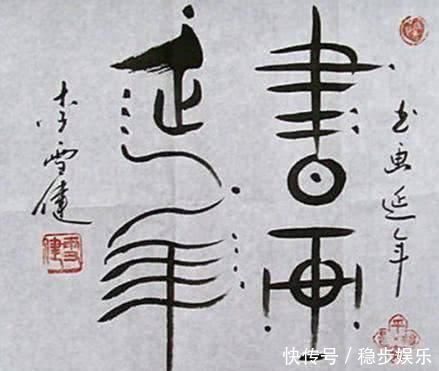 书画延年
書画
延年
李雪健
快传号 / 稳步娱乐